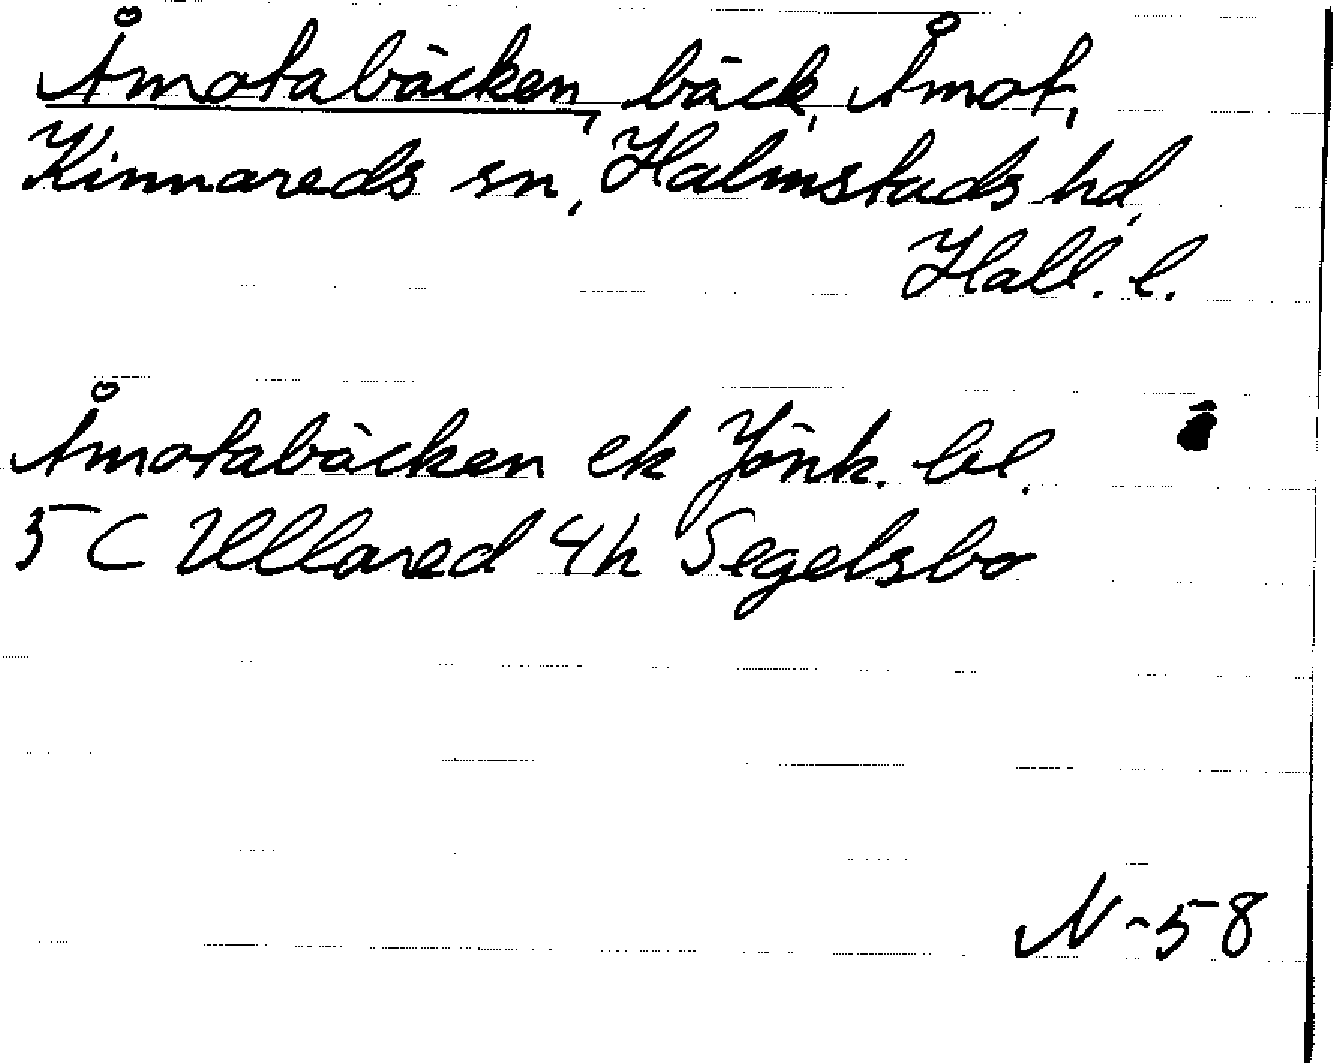 Åmotabäcken, bäck, Åmot,
Kinnareds sn, Halmstads hd,
Hall. l.
Åmotabäcken ek Jönk. bl.
5 C Ullared 4 h Segelsbo
N-58